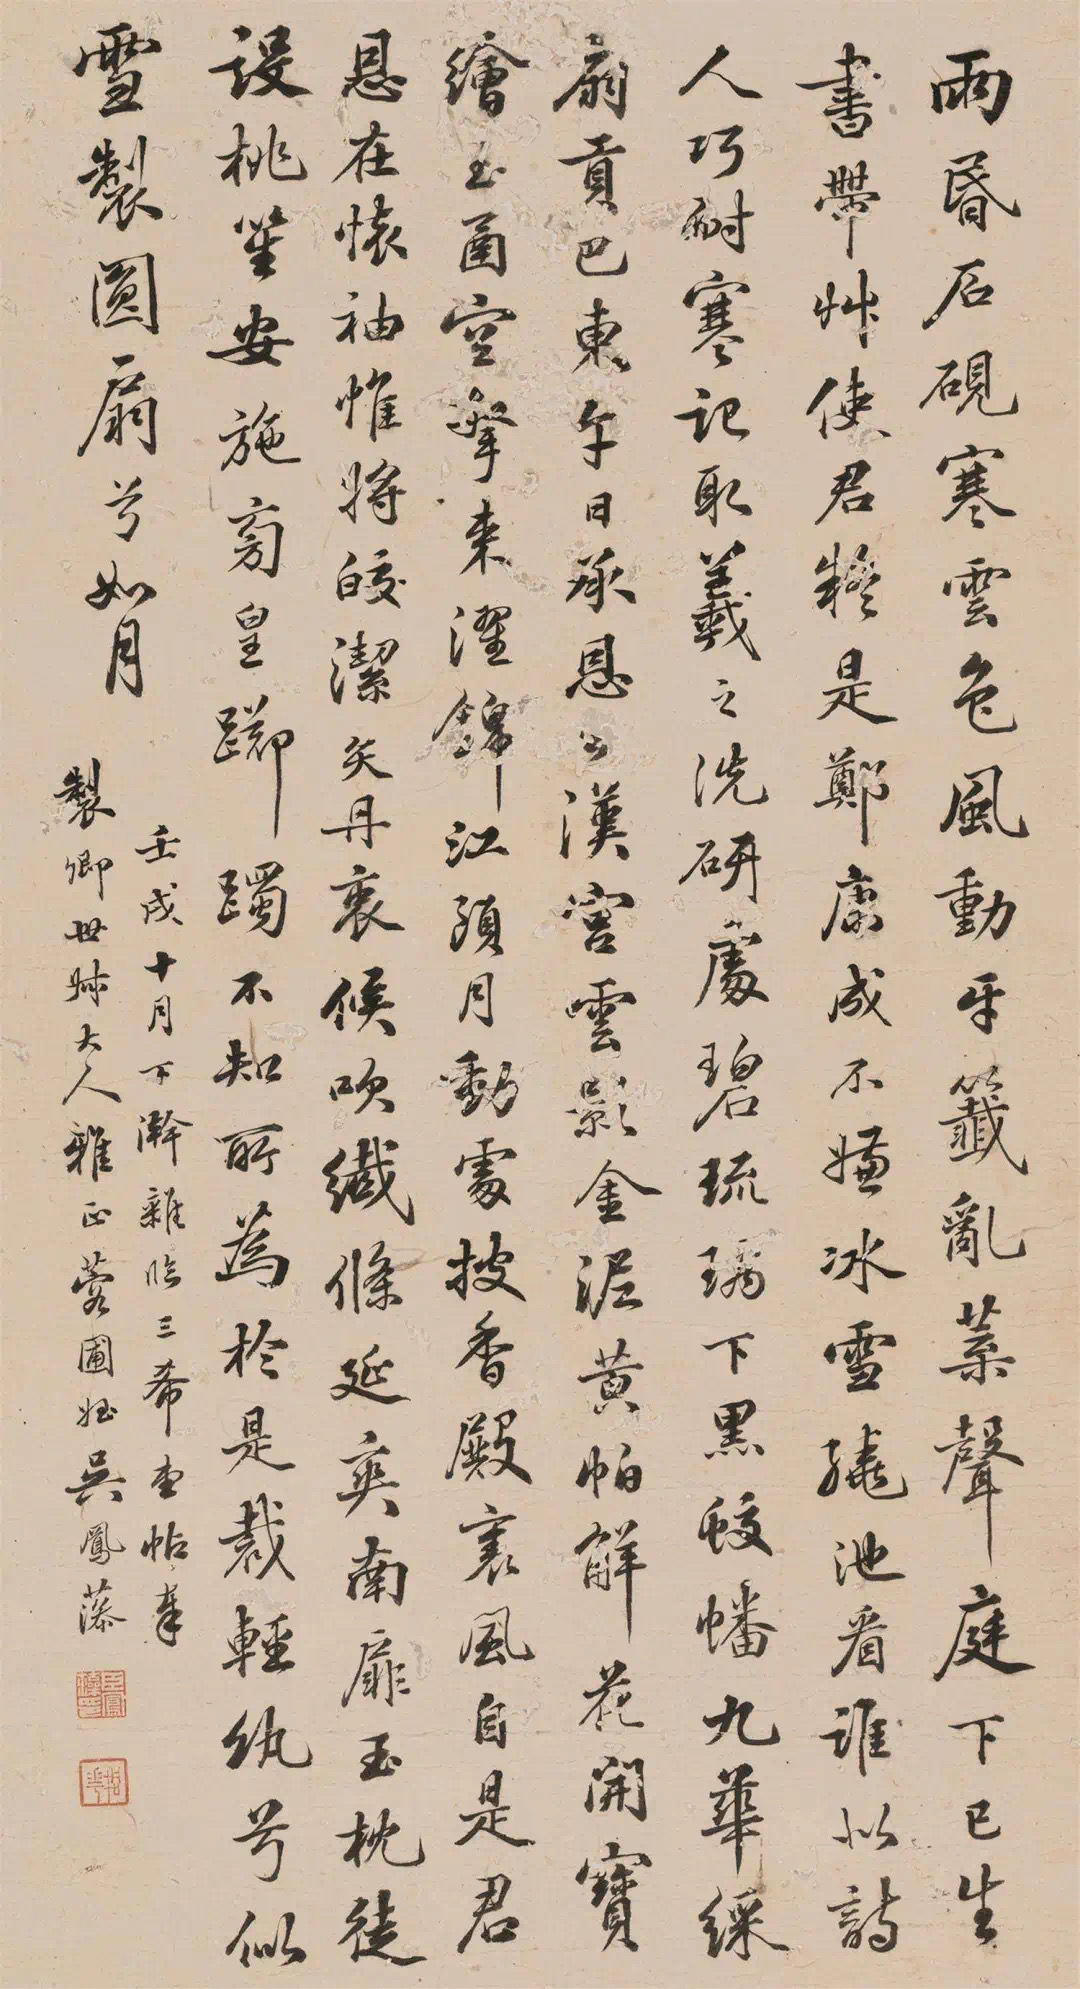 雨昏石硯寒雲色風動牙籤亂葉聲庭下已生
書帶艸使君疑是鄭康成不嫌冰雪繞池看誰似詩
人巧耐寒記取羲之洗研處碧琉璃下黑蛟蟠九華綵
扇貢巴東午日承恩出漢宮雲影金泥黃帕解花開寶
繪玉函空擎来濯錦江頭月動處披香殿裏風自是君
恩在懷袖惟將皎潔矢丹衷候吹纖絛延爽南扉玉枕徒
設桃笙安施芻皇躑躅不知所為於是裁輕紈兮似
雪製圓扇兮如月
壬戌十月下澣雜臨三希堂帖奉
製卿世叔大人雅正蓉圃姪吳鳳藻